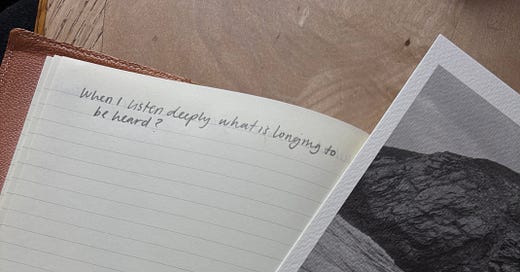 When I listen deeply what is longing to
be heard?